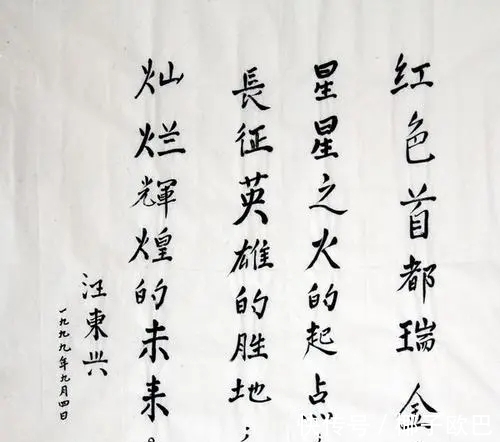 红色首都瑞金
星星之火的起点；
長征英雄的胜地；
灿烂輝煌的未来。
汪東兴
一九九九年九月四日